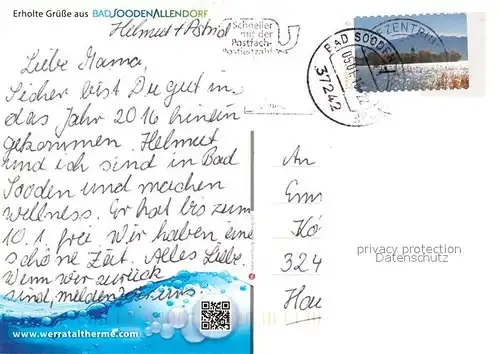 Erholte Grüße aus BADSOODENALLENDORF
Helmut + Astrid
Schneller
mit der
Postfach-
Postleitzahl
BAD SOODEN-
37242
Liebe Mama,
Sicher bist Du gut in
das Jahr 2016 hinein
gekommen. Helmut
und ich sind in Bad
Sooden und machen
wellness. Er hat bis zum
10.1. frei. Wir haben eine
schöne Zeit. Alles Liebe.
Wenn wir zurück
sind, melden wir uns.
An
Em
Kö
324
Hau
privacy protection
Datenschutz
www.werrataltherme.com